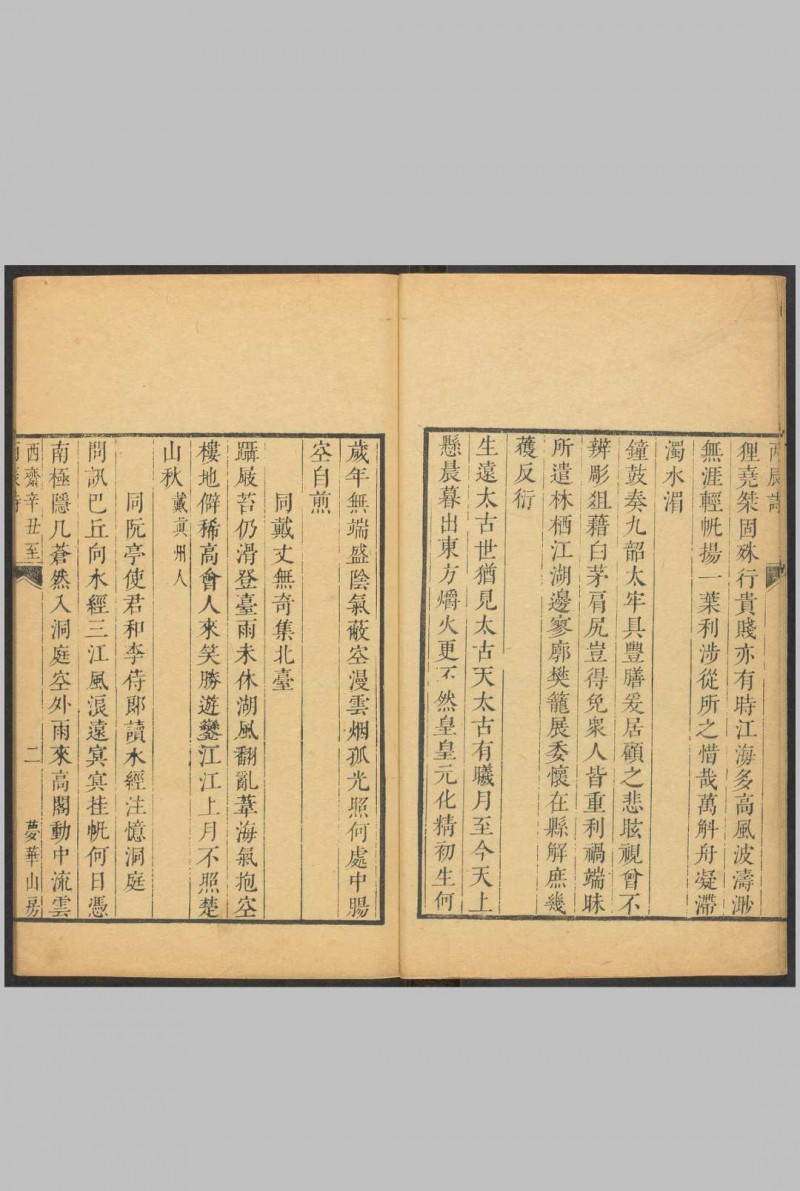 狸堯桀固殊行貴賤亦有時江海多高風波濤渺
無涯輕帆揚一葉利涉從所之惜哉萬斛舟凝滯
濁水湄
鐘鼓奏九韶太牢具豐膳爰居顧之悲眩視曾不
辨彫俎藉白茅肩尻豈得免衆人皆重利禍端昧
所遣林栖江湖邊寥廓樊籠展委懷在縣解庶幾
穫反衍
生遠太古世猶見太古天太古有曦月至今天上
懸晨暮出東方爝火更不然皇皇元化精初生何
歲年無端盛陰氣蔽空漫雲烟孤光照何處中腸
空自煎
同戴丈無奇集北臺
躡嚴苔仍滑登臺雨未休湖風翻亂葦海氣抱空
樓地僻稀高會人來笑勝遊鑾江江上月不照楚
山秋戴眞州人
同阮亭使君和李侍郎讀水經注憶洞庭
問訊巴丘向水經三江風浪遠冥冥挂帆何日憑
南極隱几蒼然入洞庭空外雨來高閣動中流雲
西齋辛丑至
二
夢華山房